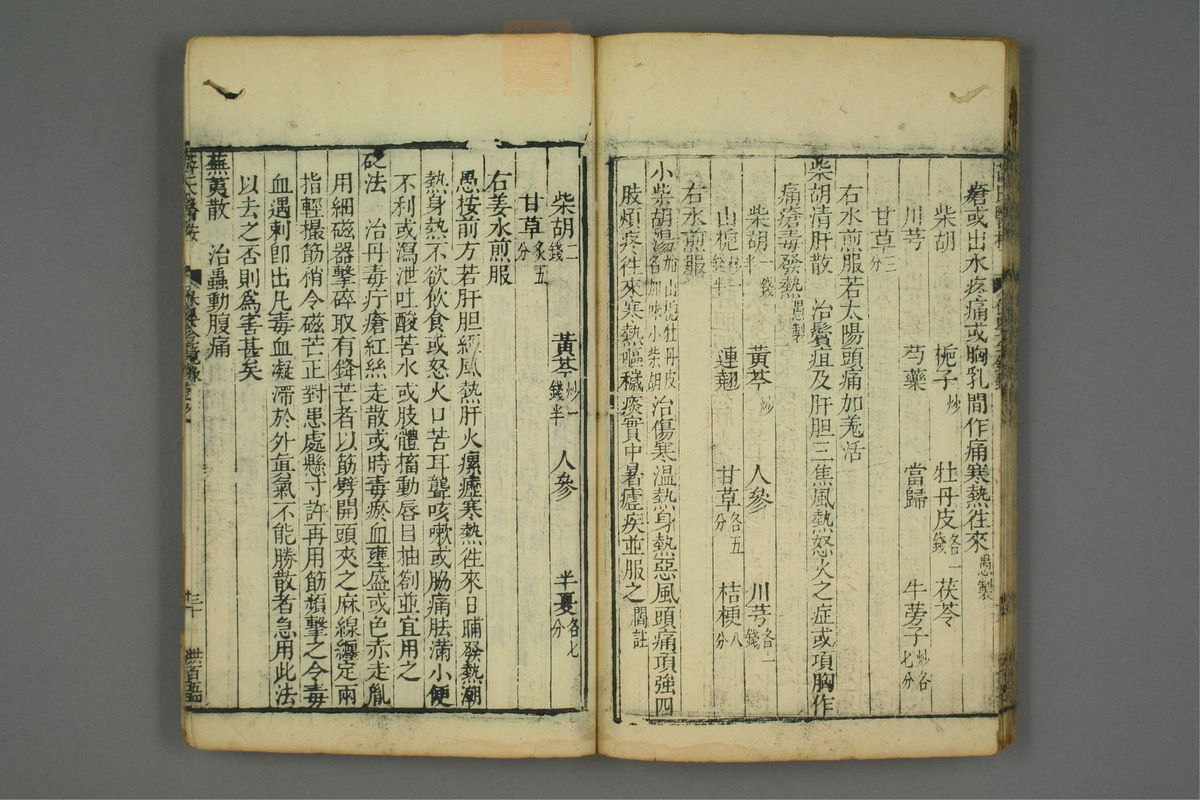 瘡或出水疼痛或胸乳間作痛寒熱徃來愚製
柴胡　梔子炒　牡丹皮各一錢　茯苓
川芎　芍藥　當歸　牛蒡子炒各七分
甘草三分
右水煎服若太陽頭痛加羗活
柴胡清肝散　治鬢疽及肝胆三焦風熱怒火之症或項胸作
痛瘡毒發熱愚製
柴胡一錢半　黃芩炒　人參　川芎各一錢
山梔炒一錢半　連翹　甘草各五分　桔梗八分
右水煎服
小柴胡湯加山梔牡丹皮名加味小柴胡　治傷寒溫熱身熱惡風頭痛項強四
肢煩疼徃來寒熱嘔穢痰實中暑瘧疾並服之閣註
柴胡二錢　黃芩炒一錢半　人參　半夏各七分
甘草炙五分
右姜水煎服
愚按前方若肝胆經風熱肝火瘰癧寒熱徃來日晡發熱潮
熱身熱不欲飲食或怒火口苦耳聾咳嗽或脇痛胠滿小便
不利或瀉泄吐酸苦水或肢體搐動唇目抽劄並宜用之
砭法　治丹毒疔瘡紅絲走散或時毒瘀血壅盛或色赤走胤
用細磁器擊碎取有鋒芒者以筯劈開頭夾之麻線纏定兩
指輕撮筯稍令磁芒正對患處懸寸許再用筯頻擊之令毒
血遇刺卽出凡毒血凝滯於外眞氣不能勝散者急用此法
以去之否則為害甚矣
蕪荑散　治蟲動腹痛
三十